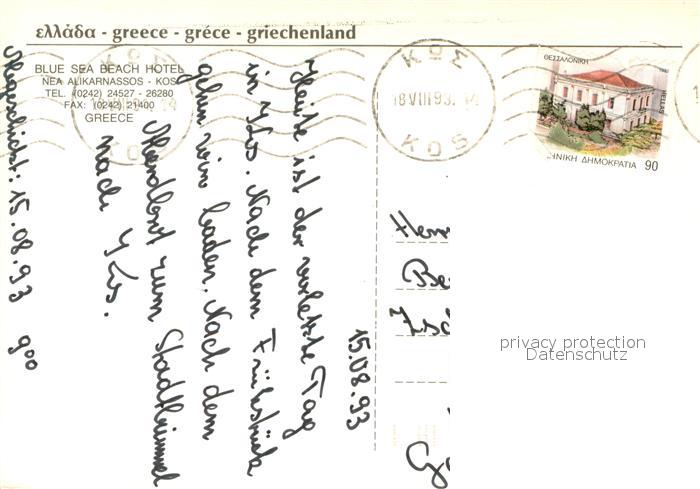 ελλάδα - greece - gréce - griechenland
BLUE SEA BEACH HOTEL
NEA ALIKARNASSOS - KOS
TEL. (0242) 24527 - 26280
FAX: (0242) 21400
GREECE
ΚΩΣ
18 VIII 93. 14
KOS
ΘΕΣΣΑΛΟΝΙΚΗ
HELLAS
ΗΝΙΚΗ ΔΗΜΟΚΡΑΤΙΑ 90
15.08.93
Heute ist der vorletzte Tag
in Kos. Nach dem Frühstück
gehen wir baden. Nach dem
Abendbrot zum Stadtbummel
nach Kos.
Abgeschickt: 15.08.93 900
Herr
Be
privacy protection
Datenschutz